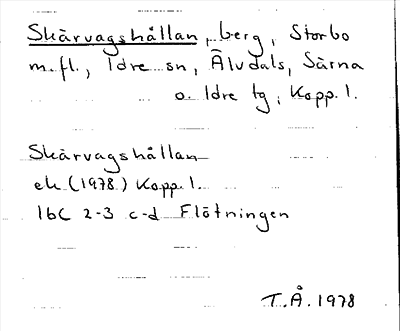 Skärvagshållan, berg, Storbo
m.fl., Idre sn, Älvdals, Särna
o. Idre tg, Kopp. l.
Skärvagshållan
ek. (1978) Kopp. l.
16C 2-3 c-d Flötningen
T.Å. 1978